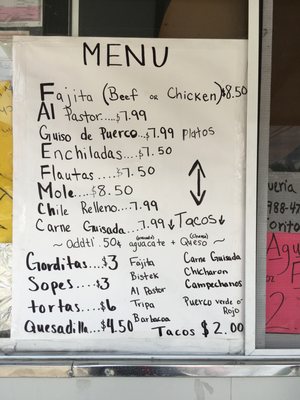 MENU
Fajita (Beef or Chicken) $8.50
Al Pastor.....$7.99
Guiso de Puerco...$7.99 platos
Enchiladas...$7.50
Flautas....$7.50
Mole....$8.50
Chile Relleno...7.99
Carne Guisada...7.99 ↓Tacos↓
~ addtl .50¢ (avocado) aguacate + (cheese) Queso ~
Gorditas...$3 Fajita Carne Guisada
Sopes...$3 Bistek Chicharon
Al Pastor Campechanos
tortas....$6 Tripa Puerco verde or Rojo
Quesadilla..$4.50 Barbacoa
Tacos $2.00
ueria
988-47
2